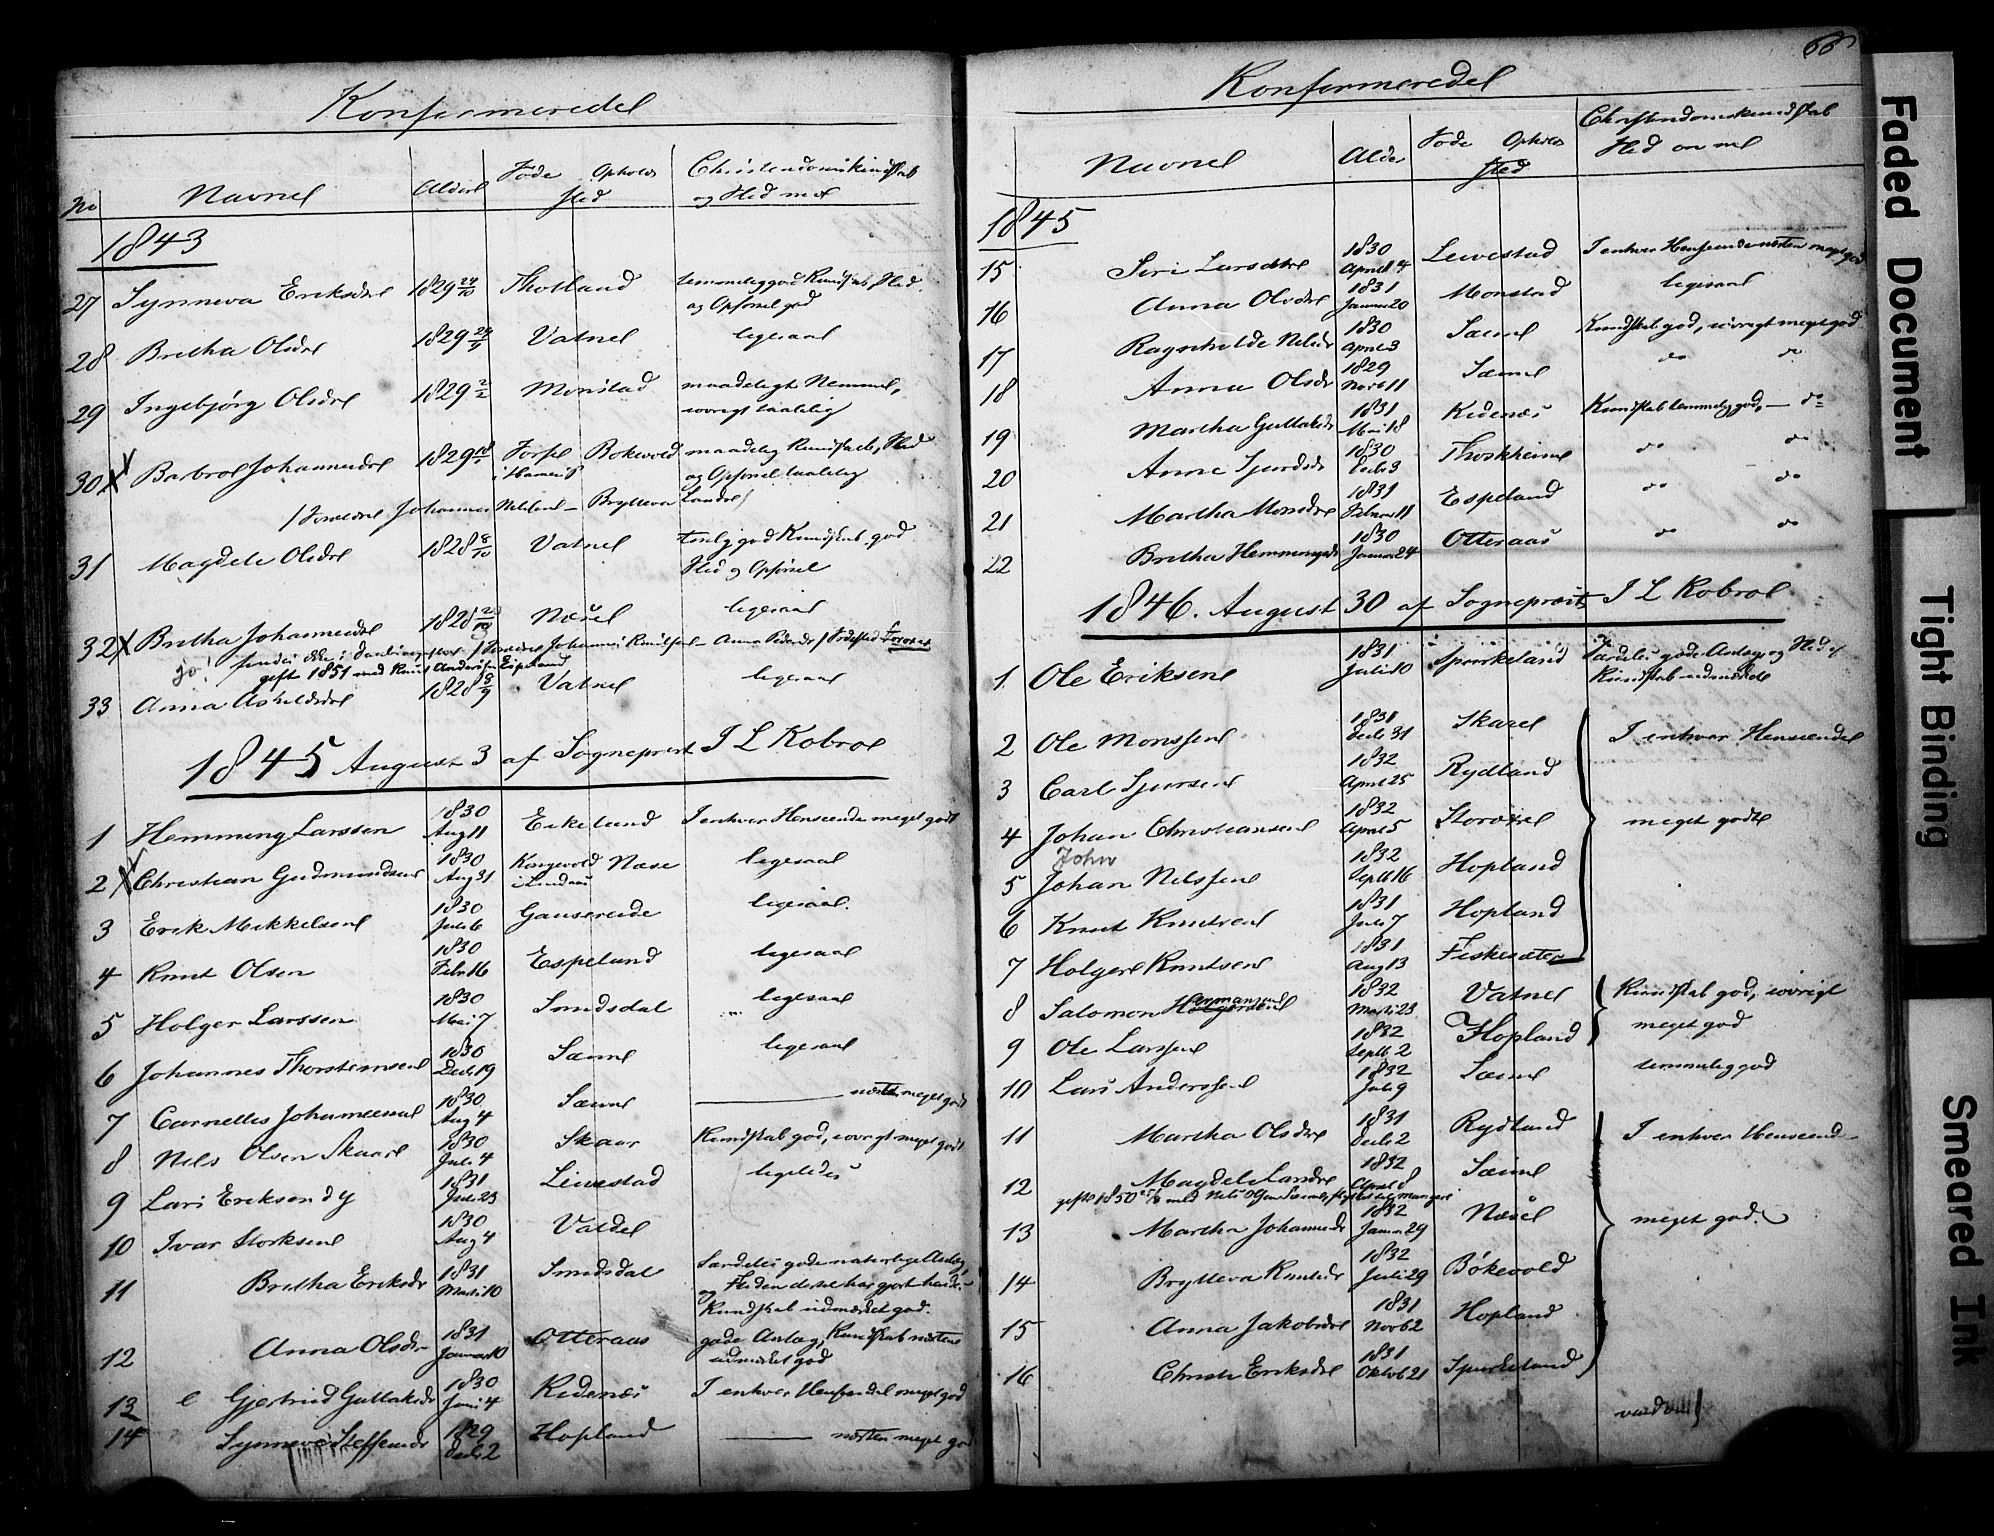 Konfermerede
No Navne Alder Føde Opholds Sted Christendomskundskab og Flid m m
1843
27 Synneva Eriksdr 1829 Flotland
og Opførsel god
28 Britha Olsdr 1829 Vatne ligesaa
29 Ingebjørg Olsdr 1829 2/2 Monstad maadeligt Nemme,
iøvrigt taalelig
30 Barbroe Johannesdr 1829 Bokevold maadelig Kundskab, Flid
og Opførsel taalelig
Johannes Nilsen - Bryteva Larsdr
31 Magdele Olsdr 1828 8/10 Vatne god Kundskab, god
Flid og Opførsel
32 Britha Johannesdr 1828 Næse ligesaa
Forældre Johannes Knudsen - Anna Pedersdr
gift 1851 med Knut Andersen Espeland
33 Anna Askeldsdr 1828 8/9 Vatne ligesaa
1845 August 3 af Sogneprest J L Kobroe
1 Hemming Larssen 1830 Aug 11 Eikeland I enhver Henseende meget godt
2 Christian Gudmundsen 1830 Aug 31 Kongevold i Lindaas Næse ligesaa
3 Erik Mikkelsen 1830 Juli 6 Gausereide ligesaa
4 Knut Olsen 1830 Febr 16 Espeland ligesaa
5 Holger Larssen 1830 Mai 7 Smidsdal ligesaa
6 Johannes Thorsteinsen 1830 Decb 19 Sæine ligesaa
7 Cornelius Johannessen 1830 Aug 4 Sæine næsten meget godt
8 Nils Olsen Skaar 1830 Juli 4 Skaar Kundskab god, iøvrigt meget godt
9 Lars Eriksen 1831 Leivestad ligeledes
10 Ivar Storksen 1830 Aug 4
11 Britha Eriksdr 1831 Marts 10 Smidsdal Særdeles gode naturlige Anlæg,
og Fliden
Kundskab udmærket god.
12 Anna Olsdr 1831 Januar 10 Otteraas gode Anlæg, Kundskab næsten
udmærket god
13 Gjertrud Guttaksdr 1830 Juni 4 Kidenæs I enhver Henseende meget god
14 Synneve Steffensdr 1829 Decb 2 Hopland næsten meget god
66
Konfermerede
Navne Alder Føde Opholds Sted Christendomskundskab Flid m m
1845
15 Siri Larsdtr 1830 April 4 Leivestad I enhver Henseende næsten meget god
16 Anna Olsdr 1831 Januar 20 Monstad ligesaa
17 Ragnhilde Nilsdr 1830 April 3 Sæine Kundskab god, iøvrigt meget god
18 Anna Olsdr 1829 Novb 11 Sæine do do
19 Martha Guttaksdr 1831 Mai 18 Kidenæs Kundskab temmelig god, — do
20 Anne Sjurdsdr 1830 Decb 3 Thoskheim do do
21 Martha Monsdr 1831 Februar 11 Espeland do do
22 Britha Hemmingsdr 1830 Januar 24 Otteraas do do
1846. August 30 af Sogneprest J L Kobroe
1. Ole Eriksen 1831 Juli 10 Spurkeland Særdeles gode Anlæg og Flid,
Kundskab udmærkede
2 Ole Monssen 1831 Decb 31 Skare I enhver Henseende
3 Carl Sjursen 1832 April 25 Rydland
4 Johan Christiansen 1832 April 5 Storøre meget godt
John
5 Johan Nilssen 1832 Septb 16 Hopland
6 Knut Knutsen 1831 Juli 7 Hopland
7 Holger Knutsen 1831 Aug 13 Fiskesæter
8 Salomon Hermansen 1832 Marts 23 Vatne Kundskab god, iøvrigt
9 Ole Larssen 1832 Septb 2 Hopland meget god
10 Lars Anderssen 1832 Juli 9 Sæine temmelig god
11 Martha Olsdr 1831 Decb 2 Rydland I enhver Henseende
12 Magdele Larsdr 1832 April 8 Sæine
gift 1850 med Nils Olsen
13 Martha Johannesdr 1832 Januar 29 Næse meget god.
14 Bryteva Knutsdr 1832 Juli 29 Bökevold
15 Anna Jakobsdr 1831 Novb 2 Hopland
16 Christi Eriksdr 1831 Oktob 21 Spurkeland
Faded Document
Tight Binding
Smeared Ink